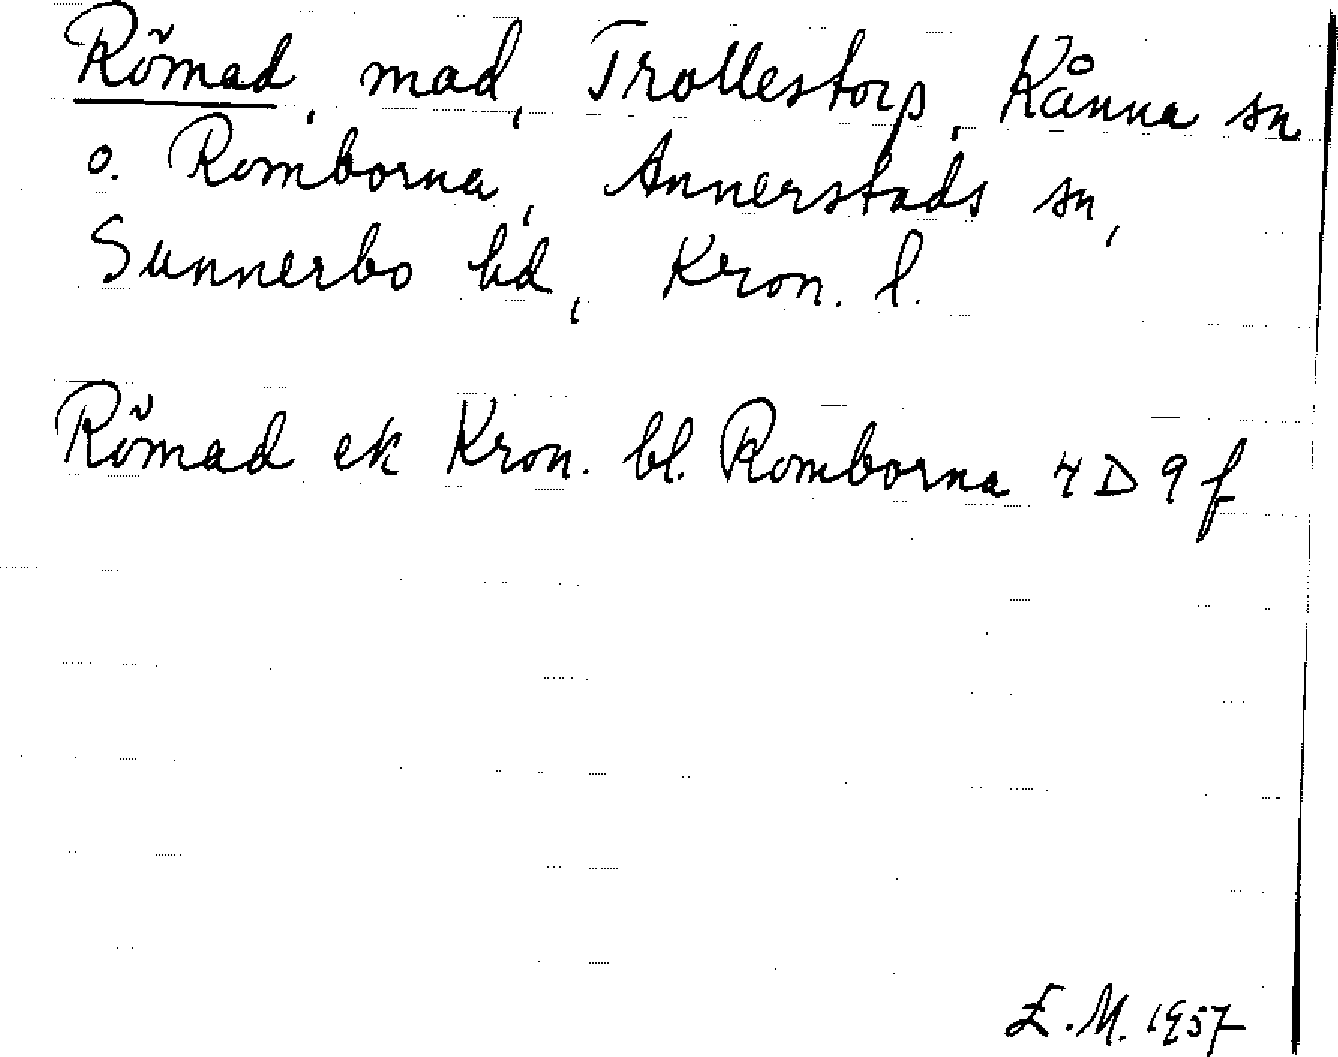 Römad, mad, Trollestorp, Kånna sn
o. Romborna, Annerstads sn,
Sunnerbo hd, Kron. l.
Römad ek Kron. bl. Romborna 4 D 9 f
E.M. 1957